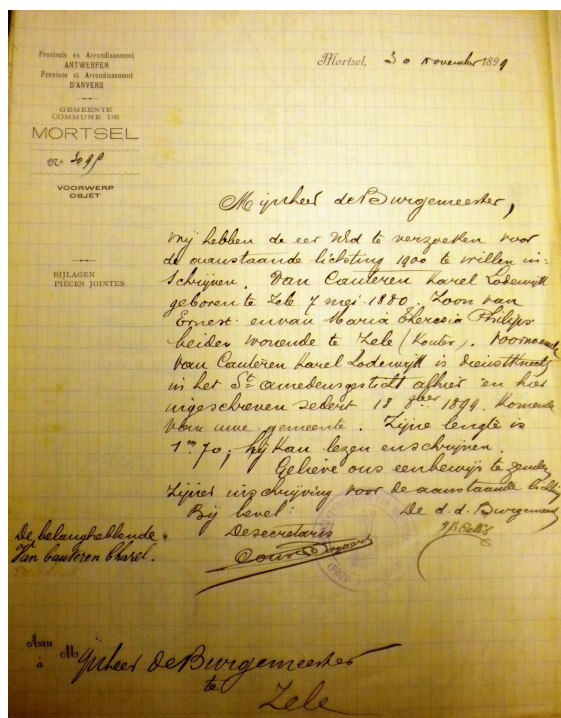 Provincie en Arrondissement
ANTWERPEN
Province et Arrondissement
D'ANVERS
GEMEENTE
COMMUNE DE
MORTSEL
No
VOORWERP
OBJET
BIJLAGEN
PIÈCES JOINTES
Mortsel, 30 November 1899
Mijnheer de Burgemeester,
Wij hebben de eer UEd te verzoeken voor
de aanstaande lichting 1900 te willen in-
schrijven. Van Cauteren Karel Lodewijk
geboren te Zele 7 mei 1880. Zoon van
Ernest en van Maria Theresia Philips
beiden wonende te Zele (Kouter). Voornoemde
Van Cauteren Karel Lodewijk is dienstknecht
in het St amedeusgesticht alhier en hier
ingeschreven sedert 18 1899. Komende
van uwe gemeente. Zijne lengte is
1m 70; hij kan lezen en schrijven.
Gelieve ons een bewijs te zenden
zijner inschrijving voor de aanstaande lichting
Bij bevel: De d.d. Burgemeester
De belanghebbende De secretaris
Van Cauteren Charel.
Aan
à
Mijnheer de Burgemeester
te
Zele